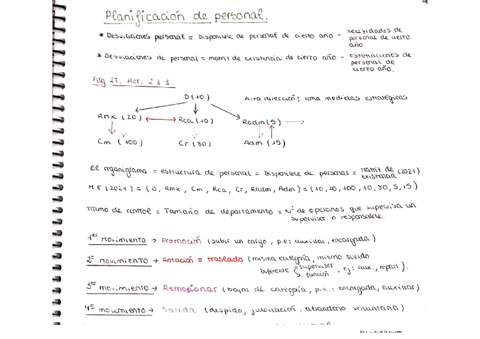 Planificación de personal.
* Desviaciones personal = Disponible de personal de cierto año - necesidades de personal de cierto año.
* Desviaciones de personal = matriz de existencia de cierto año - estimaciones de personal de cierto año.
Pág 27. Act. 2 d 1
D (10) Alta dirección; toma medidas estratégicas
Rmk (20) Rca (10) Radm (5)
Cm (100) Cr (80) Adm (15)
El organigrama = estructura de personal = Disponible de personal = matriz de existencia (2021)
M.E (2021) = (D, Rmk, Cm, Rca, Cr, Radm, Adm) = (10, 20, 100, 10, 80, 5, 15)
Tramo de control = Tamaño de departamento = Nº de operarios que supervisa un supervisor o responsable.
1er movimiento → Promoción (subir un cargo, p.e: auxiliar, encargada)
2º movimiento → Rotación o traslado (misma categoría, mismo sueldo
diferente supervisor función, ej: aux.,
3er movimiento → Remocionar (bajar de categoría, p.e.: encargada, auxiliar)
4º movimiento → Salida (despido, jubilación, abandono voluntario)